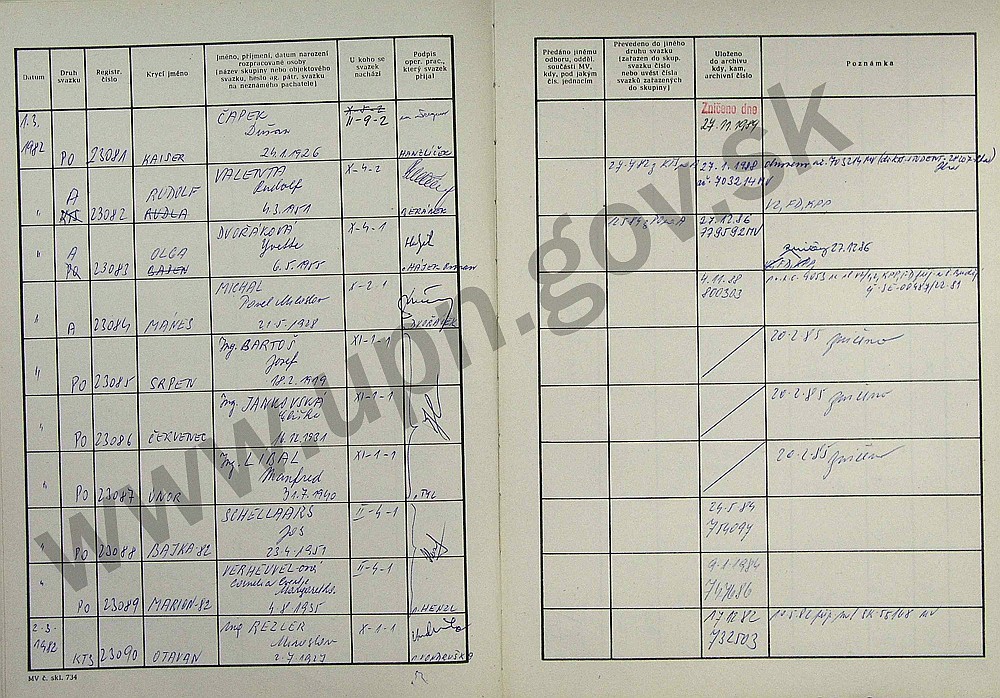 Datum
Druh
svazku
Registr.
číslo
Krycí jméno
Jméno, příjmení, datum narození
rozpracované osoby
(název skupiny nebo objektového
svazku, heslo ag. pátr. svazku
na neznámého pachatele)
U koho se
svazek
nachází
Podpis
oper. prac.,
který svazek
přijal
Předáno jinému
odboru, odděl.
součásti MV,
kdy, pod jakým
čís. jednacím
Převedeno do jiného
druhu svazku
(zařazen do skup.
svazku číslo
nebo uvést čísla
svazků zařazených
do skupiny)
Uloženo
do archivu
kdy, kam,
archivní číslo
Poznámka
1.3.
1982
PO
23081
KAISER
ČAPEK
Dušan
24.1.1926
II-9-2
HAVLÍČEK
Zničeno dne
27.11.1984
"
A
23082
RUDOLF
RUDLA
VALENTA
Rudolf
4.3.1951
X-4-2
BERÁNEK
27.1.1988
703214 MV
VZ, FD, KPP
"
A
PO
23083
OLGA
DVOŘÁKOVÁ
Yvette
6.5.1955
X-4-1
HÁJEK
27.12.86
779592 MV
27.12.86
"
A
23084
MÁNES
MICHAL
Pavel Miloslav
21.5.1928
X-2-1
DVOŘÁČEK
4.11.88
800303
"
PO
23085
SRPEN
Ing. BARTOŠ
Josef
18.2.1919
XI-1-1
20.2.85 zničeno
"
PO
23086
ČERVENEC
Ing. JANKOVSKÁ
16.12.1931
XI-1-1
20.2.85 zničeno
"
PO
23087
ÚNOR
Ing. LIBAL
Manfred
31.7.1940
XI-1-1
TYL
20.2.85 zničeno
"
PO
23088
BAJKA-82
SCHELLAARS
Jos
23.4.1951
II-4-1
24.5.84
754094
"
PO
23089
MARION-82
VERHEUVEL-ová
Cornelia
4.8.1935
II-4-1
HENZL
9.1.1984
747686
2.3.
1982
KTS
23090
OTAVAN
Ing REZLER
Miroslav
2.7.1927
X-1-1
ONDRUŠKA
17.12.82
732503
MV č. skl. 734
www.upn.gov.sk